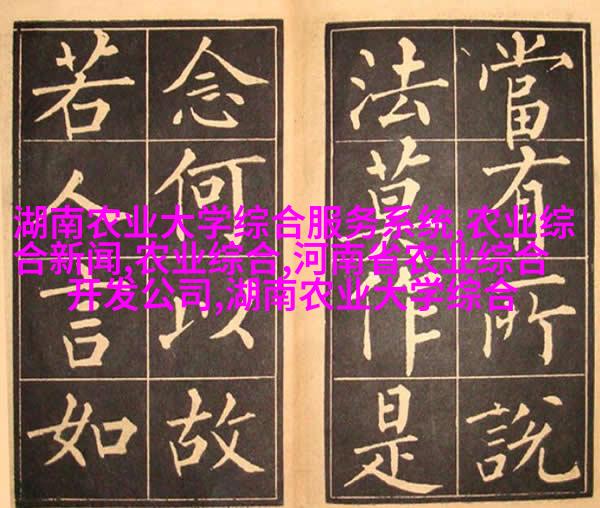 當有所說
法莫作是
念何以故
若人言如
湖南农业大学综合服务系统,农业综
合新闻,农业综合,河南省农业综合
开发公司,湖南农业大学综合